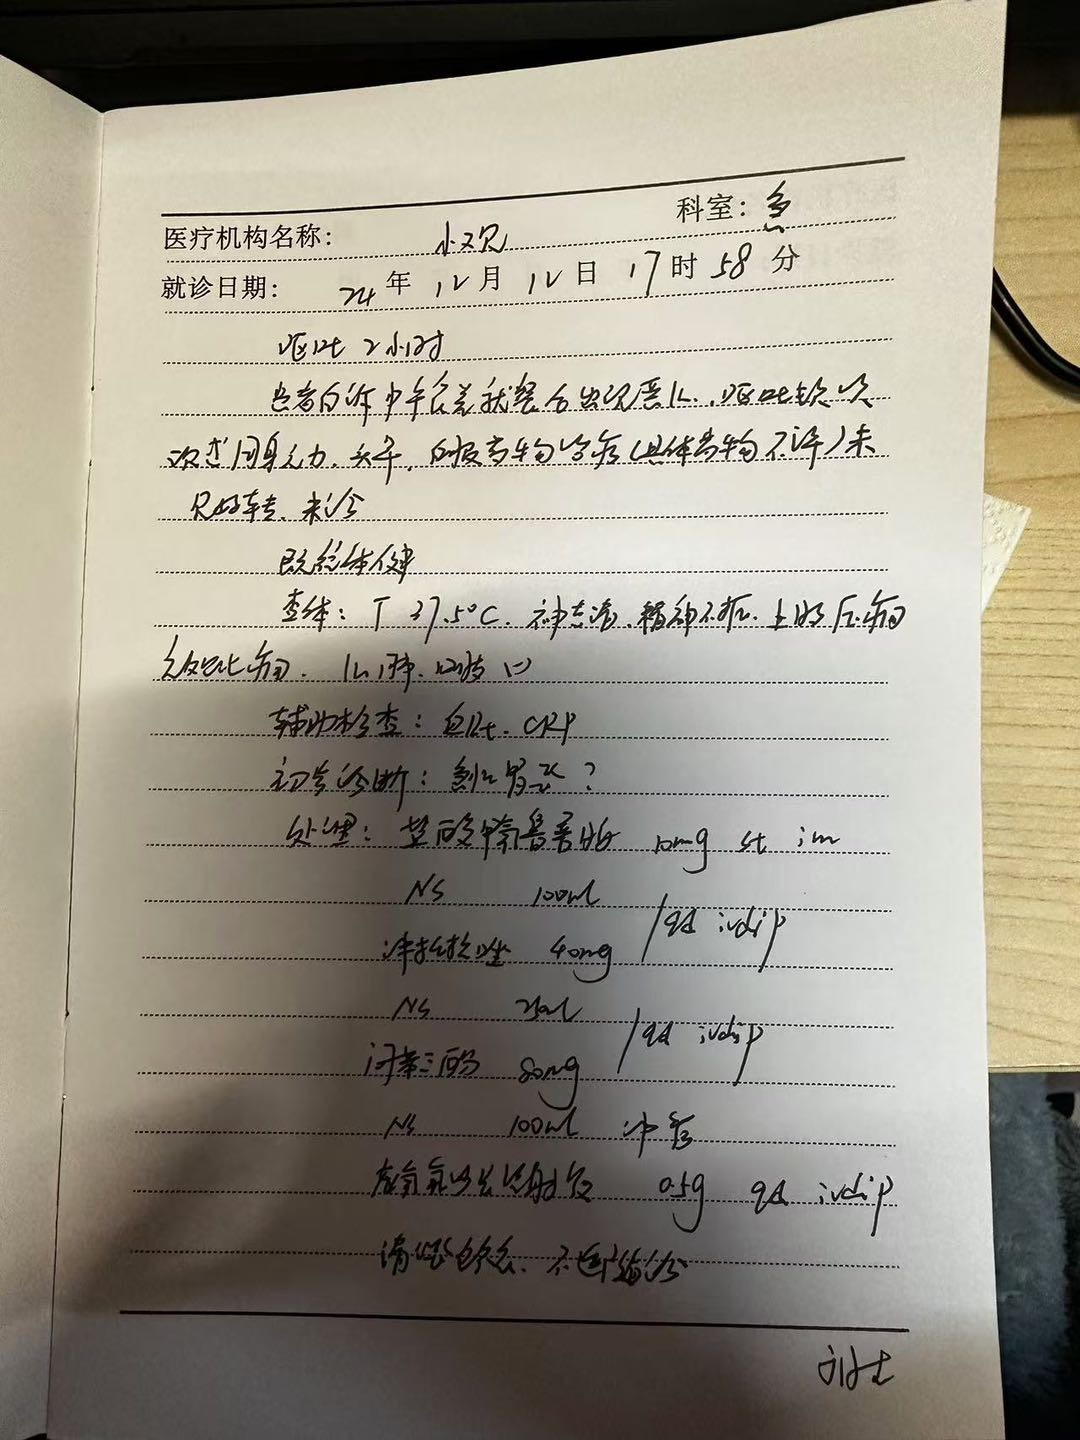 科室: 急
医疗机构名称: 小汉
就诊日期: 24 年 12 月 12 日 17 时 58 分
呕吐 2小时
患者自诉中午食羊我餐后出现恶心、呕吐数次
次, 周身乏力、头晕, 自服药物治疗(具体药物不详)未
见好转、来诊
既往体健
查体: T 37.5℃. 神志清、精神不振. 上腹压痛
无反跳痛. 心肺、四肢(-)
辅助检查: 血Rt. CRP
初步诊断: 急性胃炎?
处理: 盐酸甲氧氯普胺 10mg st im
NS 100ml
泮托拉唑 40mg / qd ivdip
NS 250ml
间苯三酚 80mg / qd ivdip
NS 100ml 冲管
左氧氟沙星注射液 0.5g qd ivdip
清淡饮食、不适随诊